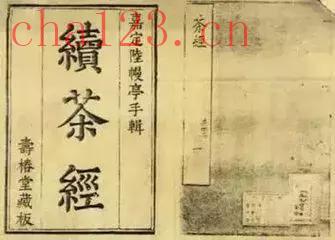 嘉定陸幔亭手輯
續茶經
壽椿堂藏板
茶經
cha123.cn.com